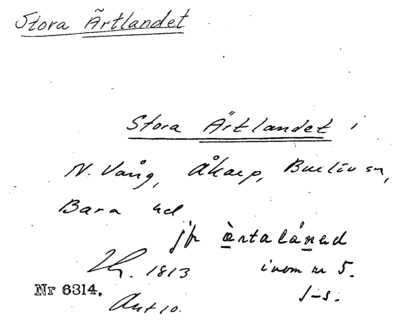 Stora Ärtlandet
Stora Ärtlandet i
N. Vång, Åkarp, Burlöv sn,
Bara hd
jfr àrtalánad
Lh. 1813 inom nr 5.
Nr 6314. J-s.
Akt 10.